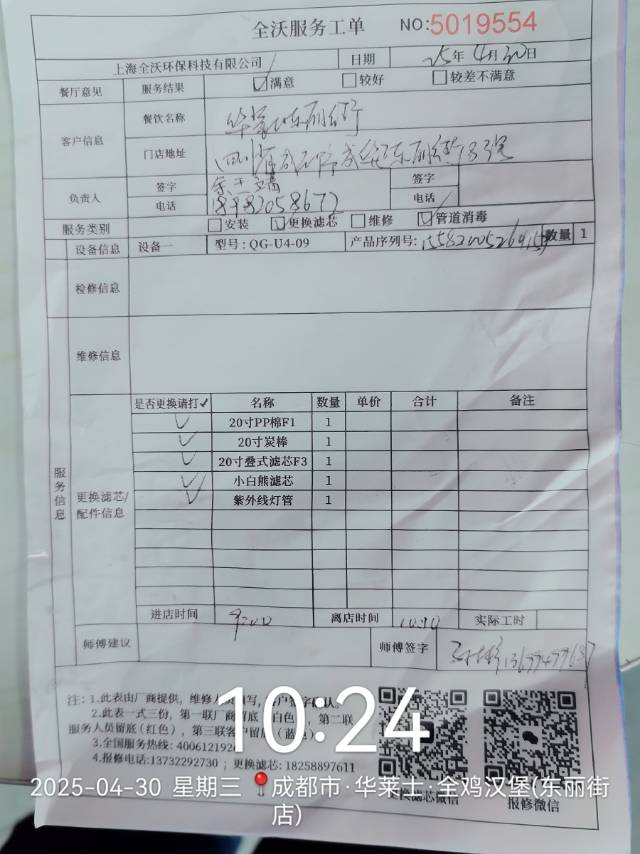 全沃服务工单 NO:5019554
上海全沃环保科技有限公司 日期 25年4月30日
餐厅意见 服务结果 ☑满意 □较好 □较差不满意
客户信息 餐饮名称 华莱士东丽街
门店地址
负责人 签字 签字
电话 18983058672 电话
服务类别 □安装 ☑更换滤芯 □维修 ☑管道消毒
设备信息 设备一 型号:QG-U4-09 产品序列号: 数量 1
检修信息
维修信息
服务信息
更换滤芯/配件信息
是否更换请打✓ 名称 数量 单价 合计 备注
✓ 20寸PP棉F1 1
✓ 20寸炭棒 1
✓ 20寸叠式滤芯F3 1
✓ 小白熊滤芯 1
✓ 紫外线灯管 1
进店时间 9:00 离店时间 10:20 实际工时
师傅建议 师傅签字
注:1.此表由厂商提供,维修人员填写,客户签字确认。
2.此表一式三份,第一联厂商留底(白色),第二联
服务人员留底(红色),第三联客户留底(蓝
3.全国服务热线:4006121926
4.报修电话:13732292730;更换滤芯:18258897611
更换滤芯微信 报修微信
10:24
2025-04-30 星期三 成都市·华莱士·全鸡汉堡(东丽街
店)